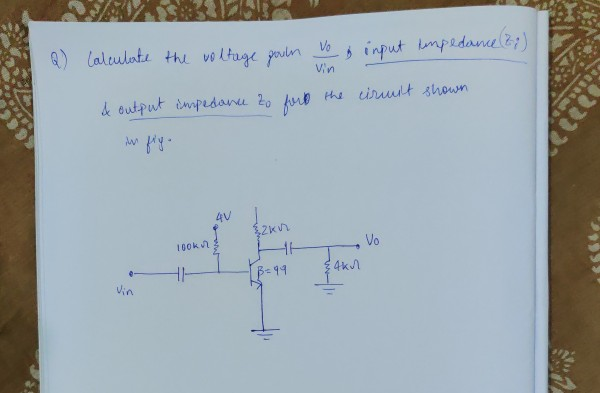 Q) Calculate the voltage gain Vo/Vin & input impedance (Zi)
& output impedance Zo for the circuit shown
in fig.
4V
2kΩ
100kΩ
Vo
β=99
4kΩ
Vin